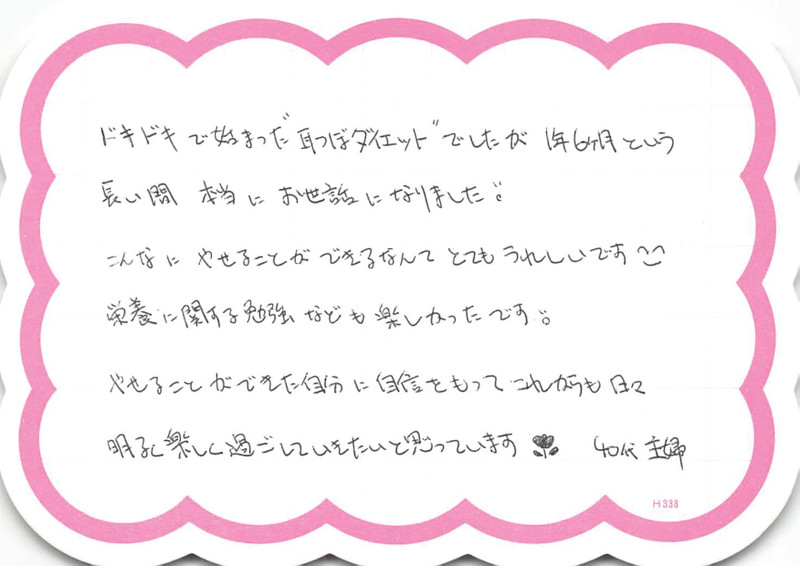 ドキドキで始まった"耳つぼダイエット"でしたが 1年6ヶ月という
長い間 本当に お世話になりました。
こんなに やせることが できるなんて とても うれしいです
栄養に関する勉強なども楽しかったです。
やせることができた自分に自信をもって これからも 日々
明るく楽しく過ごしていきたいと思っています 40代 主婦
H338